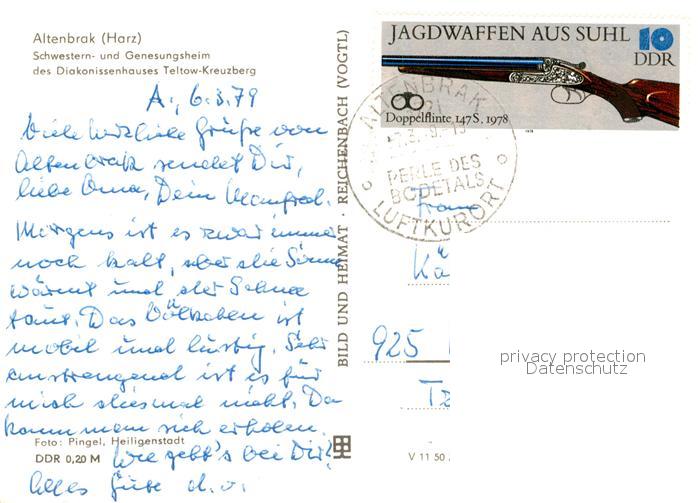 Altenbrak (Harz)
Schwestern- und Genesungsheim
des Diakonissenhauses Teltow-Kreuzberg
A., 6.3.79
Viele herzliche Grüße von
Altenbrak sendet Dir,
liebe Oma, Dein Manfred.
Morgens ist es zwar immer
noch kalt, aber die Sonne
wärmt und der Schnee
taut. Das Völkchen ist
mobil und lustig. Sehr
anstrengend ist es für
mich diesmal nicht. Da
kann man sich erholen.
Foto: Pingel, Heiligenstadt
DDR 0,20 M
Wie geht's bei Dir?
Alles Gute d. o.
BILD UND HEIMAT · REICHENBACH (VOGTL)
JAGDWAFFEN AUS SUHL 10
DDR
Doppelflinte 147S, 1978
ALTENBRAK
PERLE DES
BODETALS
LUFTKURORT
Frau
Kä
925
V 11 50
privacy protection
Datenschutz